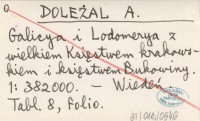 DOLEŻAL A.
Galicya i Lodomerya z
wielkiem Księstwem krakows-
kiem i księstwem Bukowiny.
1:382000. - Wiedeń
Tabl. 8, folio.